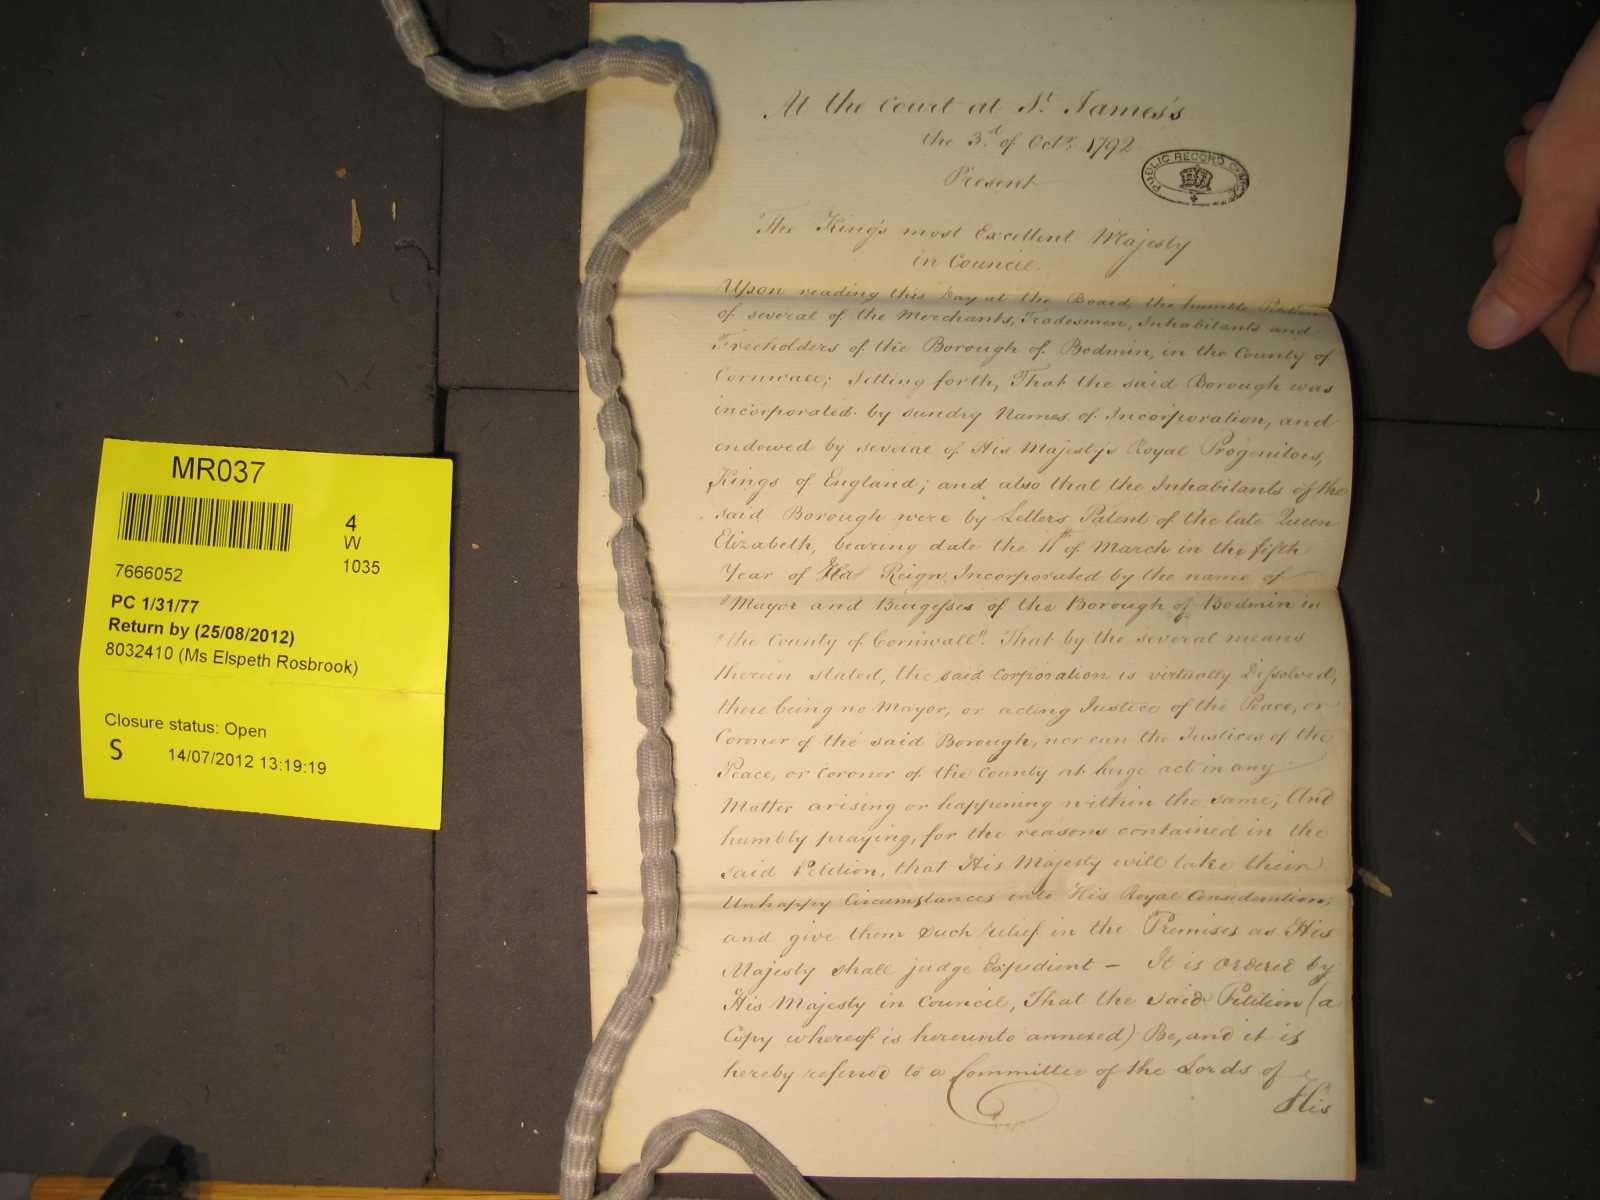 At the Court at St. James's
the 3d. of Octr. 1792
Present
PUBLIC RECORD OFFICE
The King's most Excellent Majesty
in Council.
Upon reading this day at the Board the humble Petition
of several of the Merchants, Tradesmen, Inhabitants and
Freeholders of the Borough of Bodmin, in the County of
Cornwall; Setting forth, That the said Borough was
incorporated by sundry Names of Incorporation, and
endowed by several of His Majesty's Royal Progenitors,
Kings of England; and also that the Inhabitants of the
said Borough were by Letters Patent of the late Queen
Elizabeth, bearing date the 11th of March in the fifth
Year of Her Reign, Incorporated by the name of
"Mayor and Burgesses of the Borough of Bodmin in
"the County of Cornwall". That by the several means
therein stated, the said Corporation is virtually Dissolved,
there being no Mayor, or acting Justice of the Peace, or
Coroner of the said Borough, nor can the Justices of the
Peace, or Coroner of the County at large act in any
Matter arising or happening within the same; And
humbly praying, for the reasons contained in the
said Petition, that His Majesty will take their
Unhappy Circumstances into His Royal Consideration;
and give them such relief in the Premises as His
Majesty shall judge Expedient — It is ordered by
His Majesty in Council, That the said Petition (a
Copy whereof is hereunto annexed) Be, and it is
hereby referred to a Committee of the Lords of
His
MR037
4
W
1035
7666052
PC 1/31/77
Return by (25/08/2012)
8032410 (Ms Elspeth Rosbrook)
Closure status: Open
S 14/07/2012 13:19:19